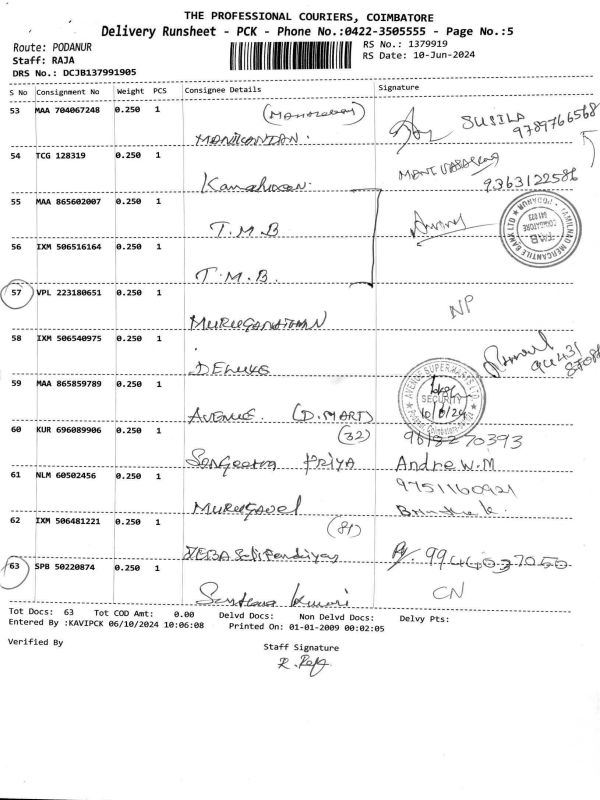 THE PROFESSIONAL COURIERS, COIMBATORE
Delivery Runsheet - PCK - Phone No.:0422-3505555 - Page No.:5
Route: PODANUR
RS No.: 1379919
Staff: RAJA
RS Date: 10-Jun-2024
DRS No.: DCJB137991905
S No Consignment No Weight PCS Consignee Details Signature
53 MAA 704067248 0.250 1
SUSILA
9789766568
MANIKANDAN.
54 TCG 128319 0.250 1
9363122586
55 MAA 865602007 0.250 1
T.M.B
TAMILNAD MERCANTILE BANK LTD
PODANUR
COIMBATORE
641 023
TMB
56 IXM 506516164 0.250 1
T.M.B.
57 VPL 223180651 0.250 1
NP
58 IXM 506540975 0.250 1
59 MAA 865859789 0.250 1
AVENUE SUPERMARTS LTD
SECURITY
10/6/24
AVENUE. (D.MART)
60 KUR 696089906 0.250 1
(32) 9618270393
Sangeetha PRIYA Andrew.M
61 NLM 60502456 0.250 1
9751160921
Murugavel
62 IXM 506481221 0.250 1
(81)
9944037050
63 SPB 50220874 0.250 1
CN
Santhana Kumari
Tot Docs: 63 Tot COD Amt: 0.00 Delvd Docs: Non Delvd Docs: Delvy Pts:
Entered By :KAVIPCK 06/10/2024 10:06:08 Printed On: 01-01-2009 00:02:05
Verified By
Staff Signature
R. Raja